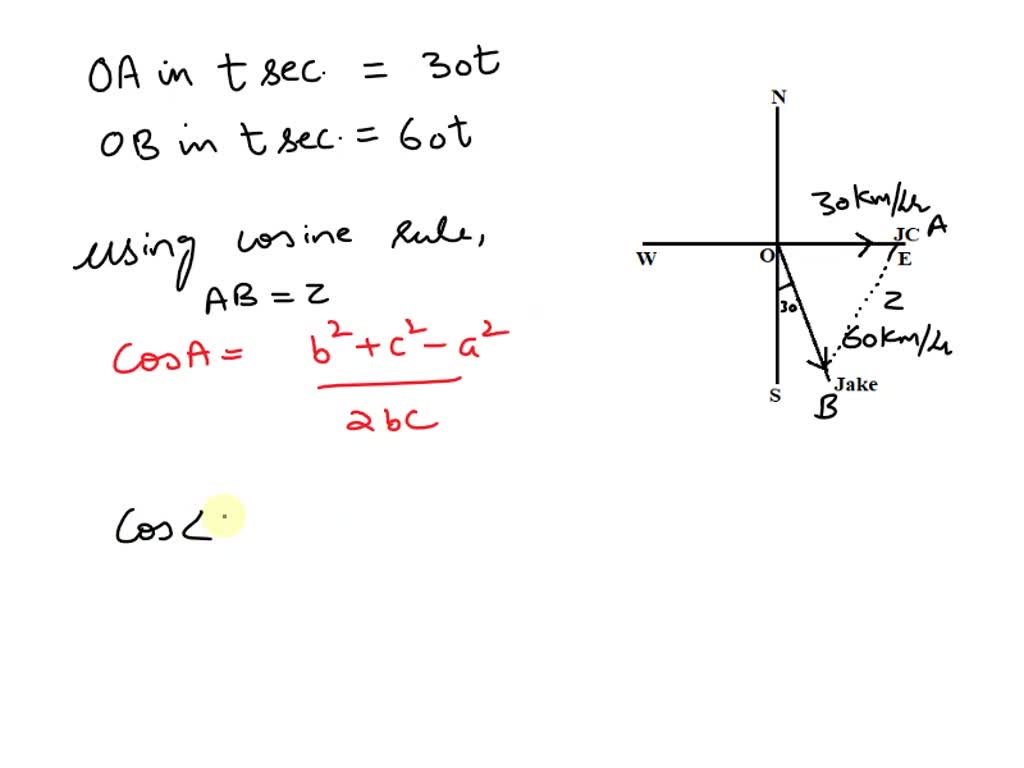 OA in t sec. = 30t
OB in t sec. = 60t
using cosine rule,
AB = z
CosA = b² + c² - a² / 2bc
Cos<
N
30km/hr
JC A
W O E
30
z
60km/hr
S Jake
B